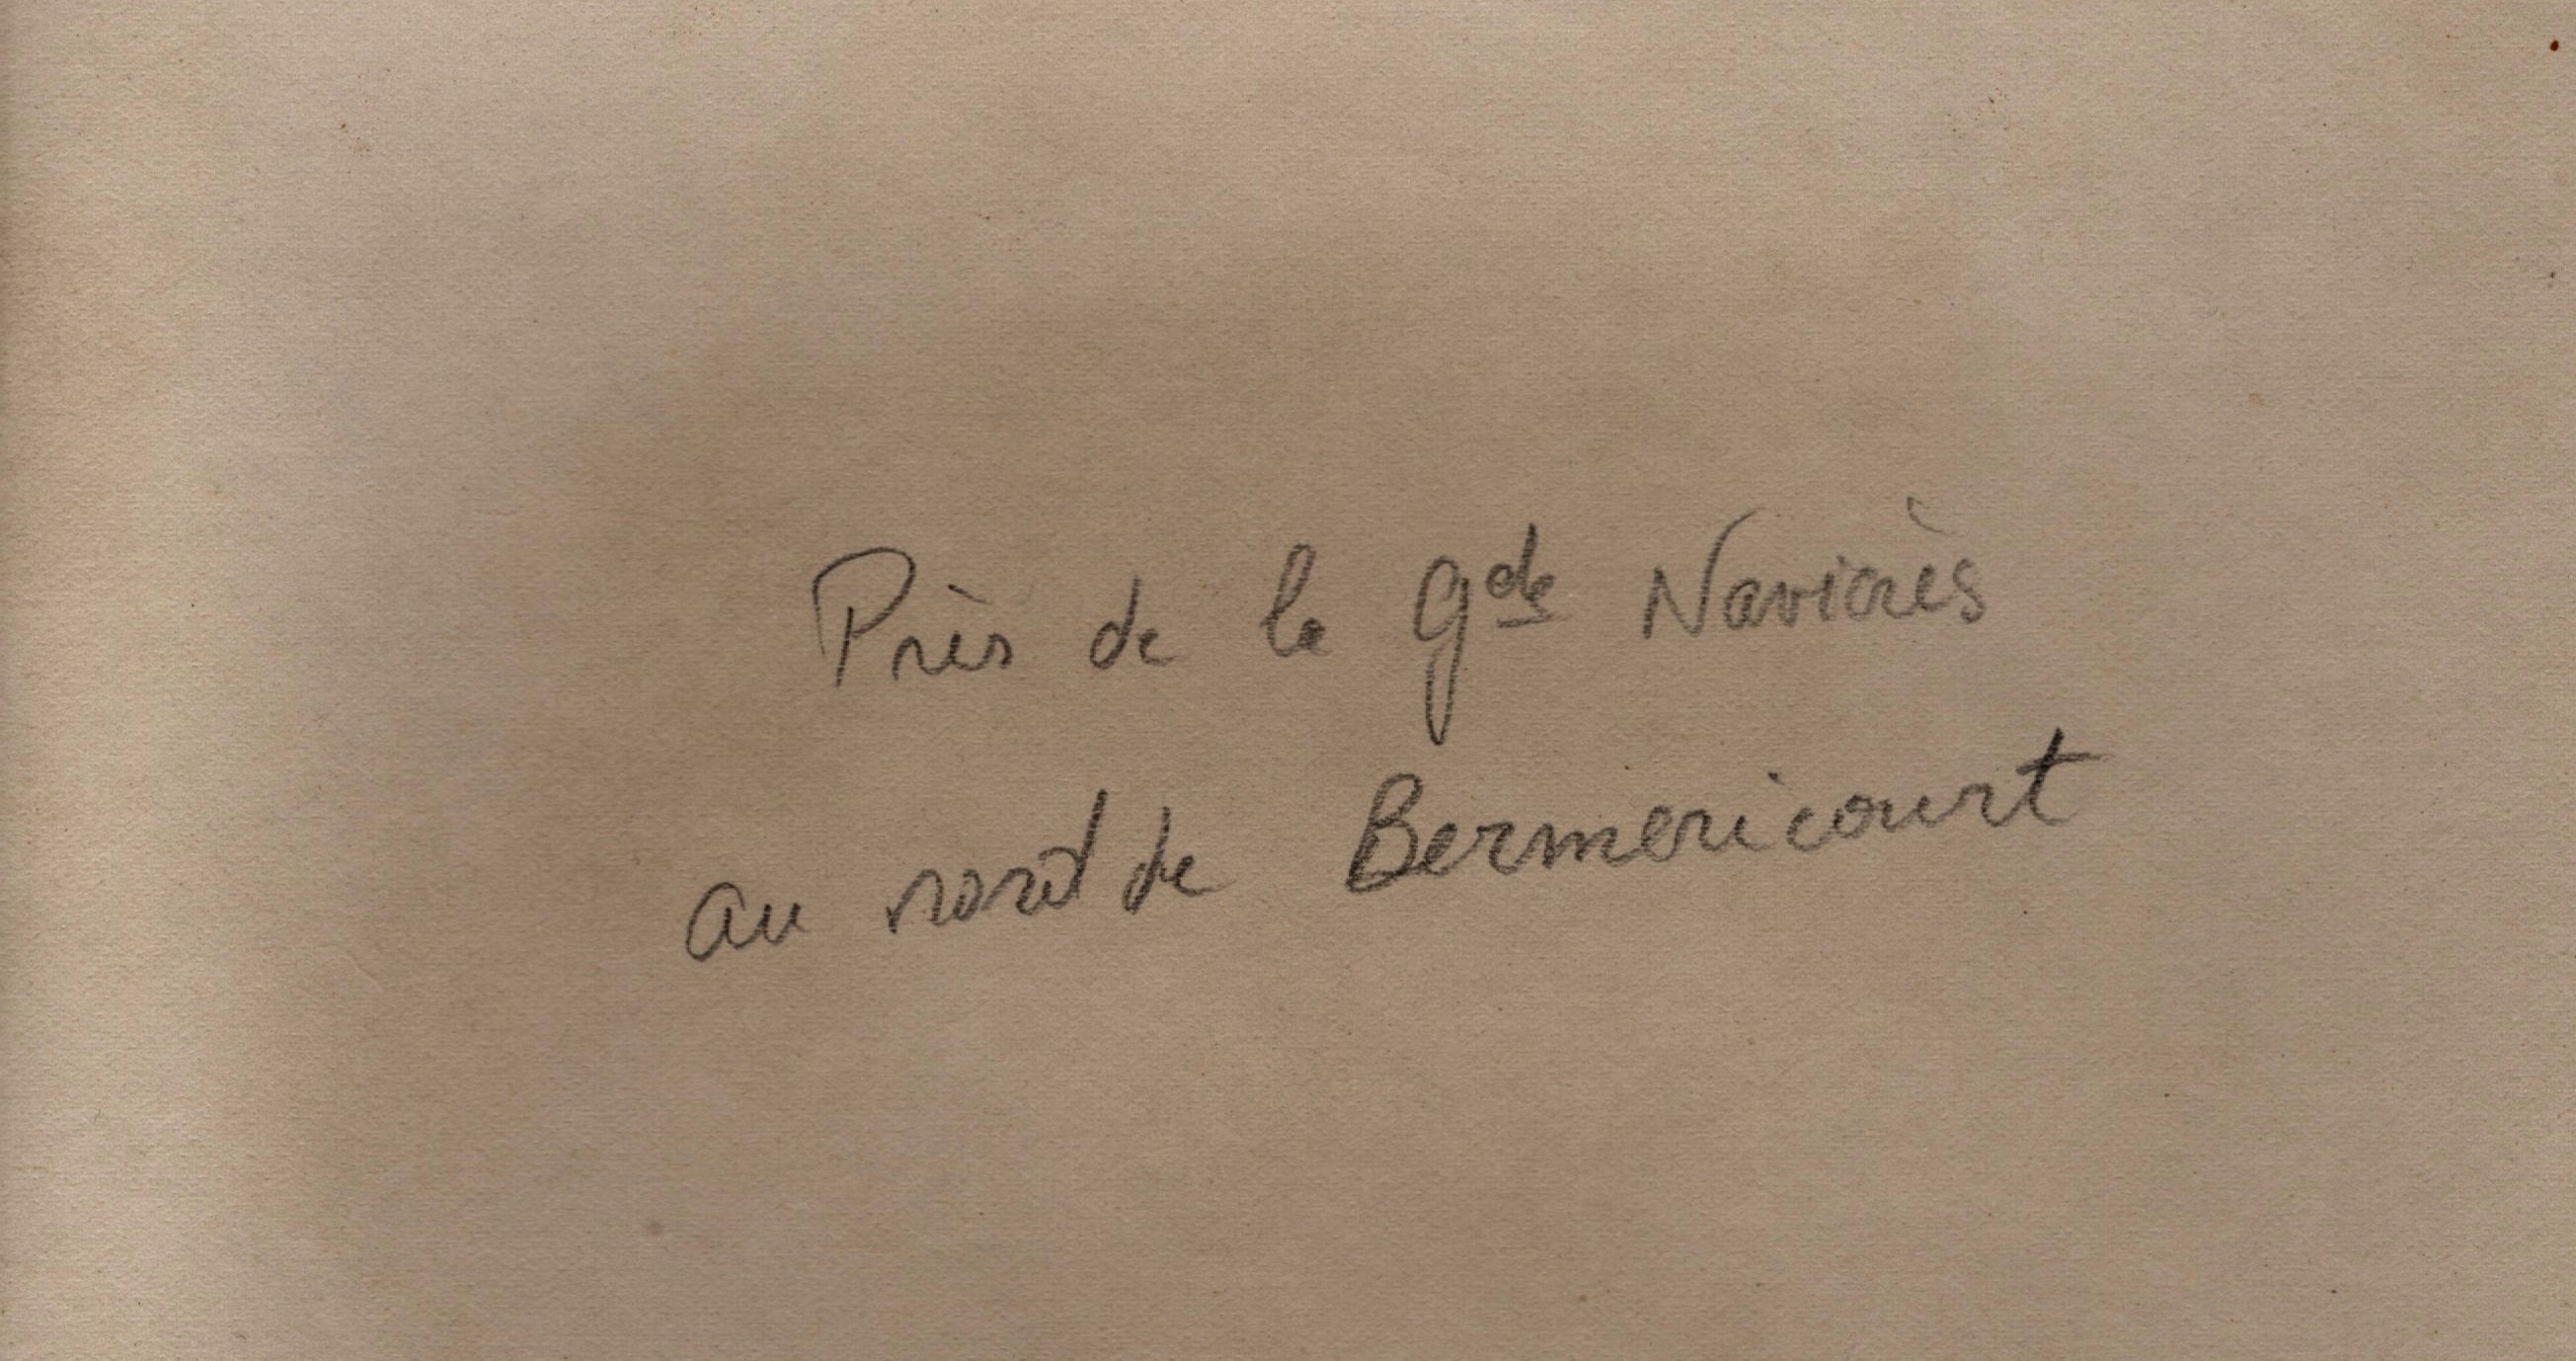 Près de la gde Navicrès
au nord de Bermericourt